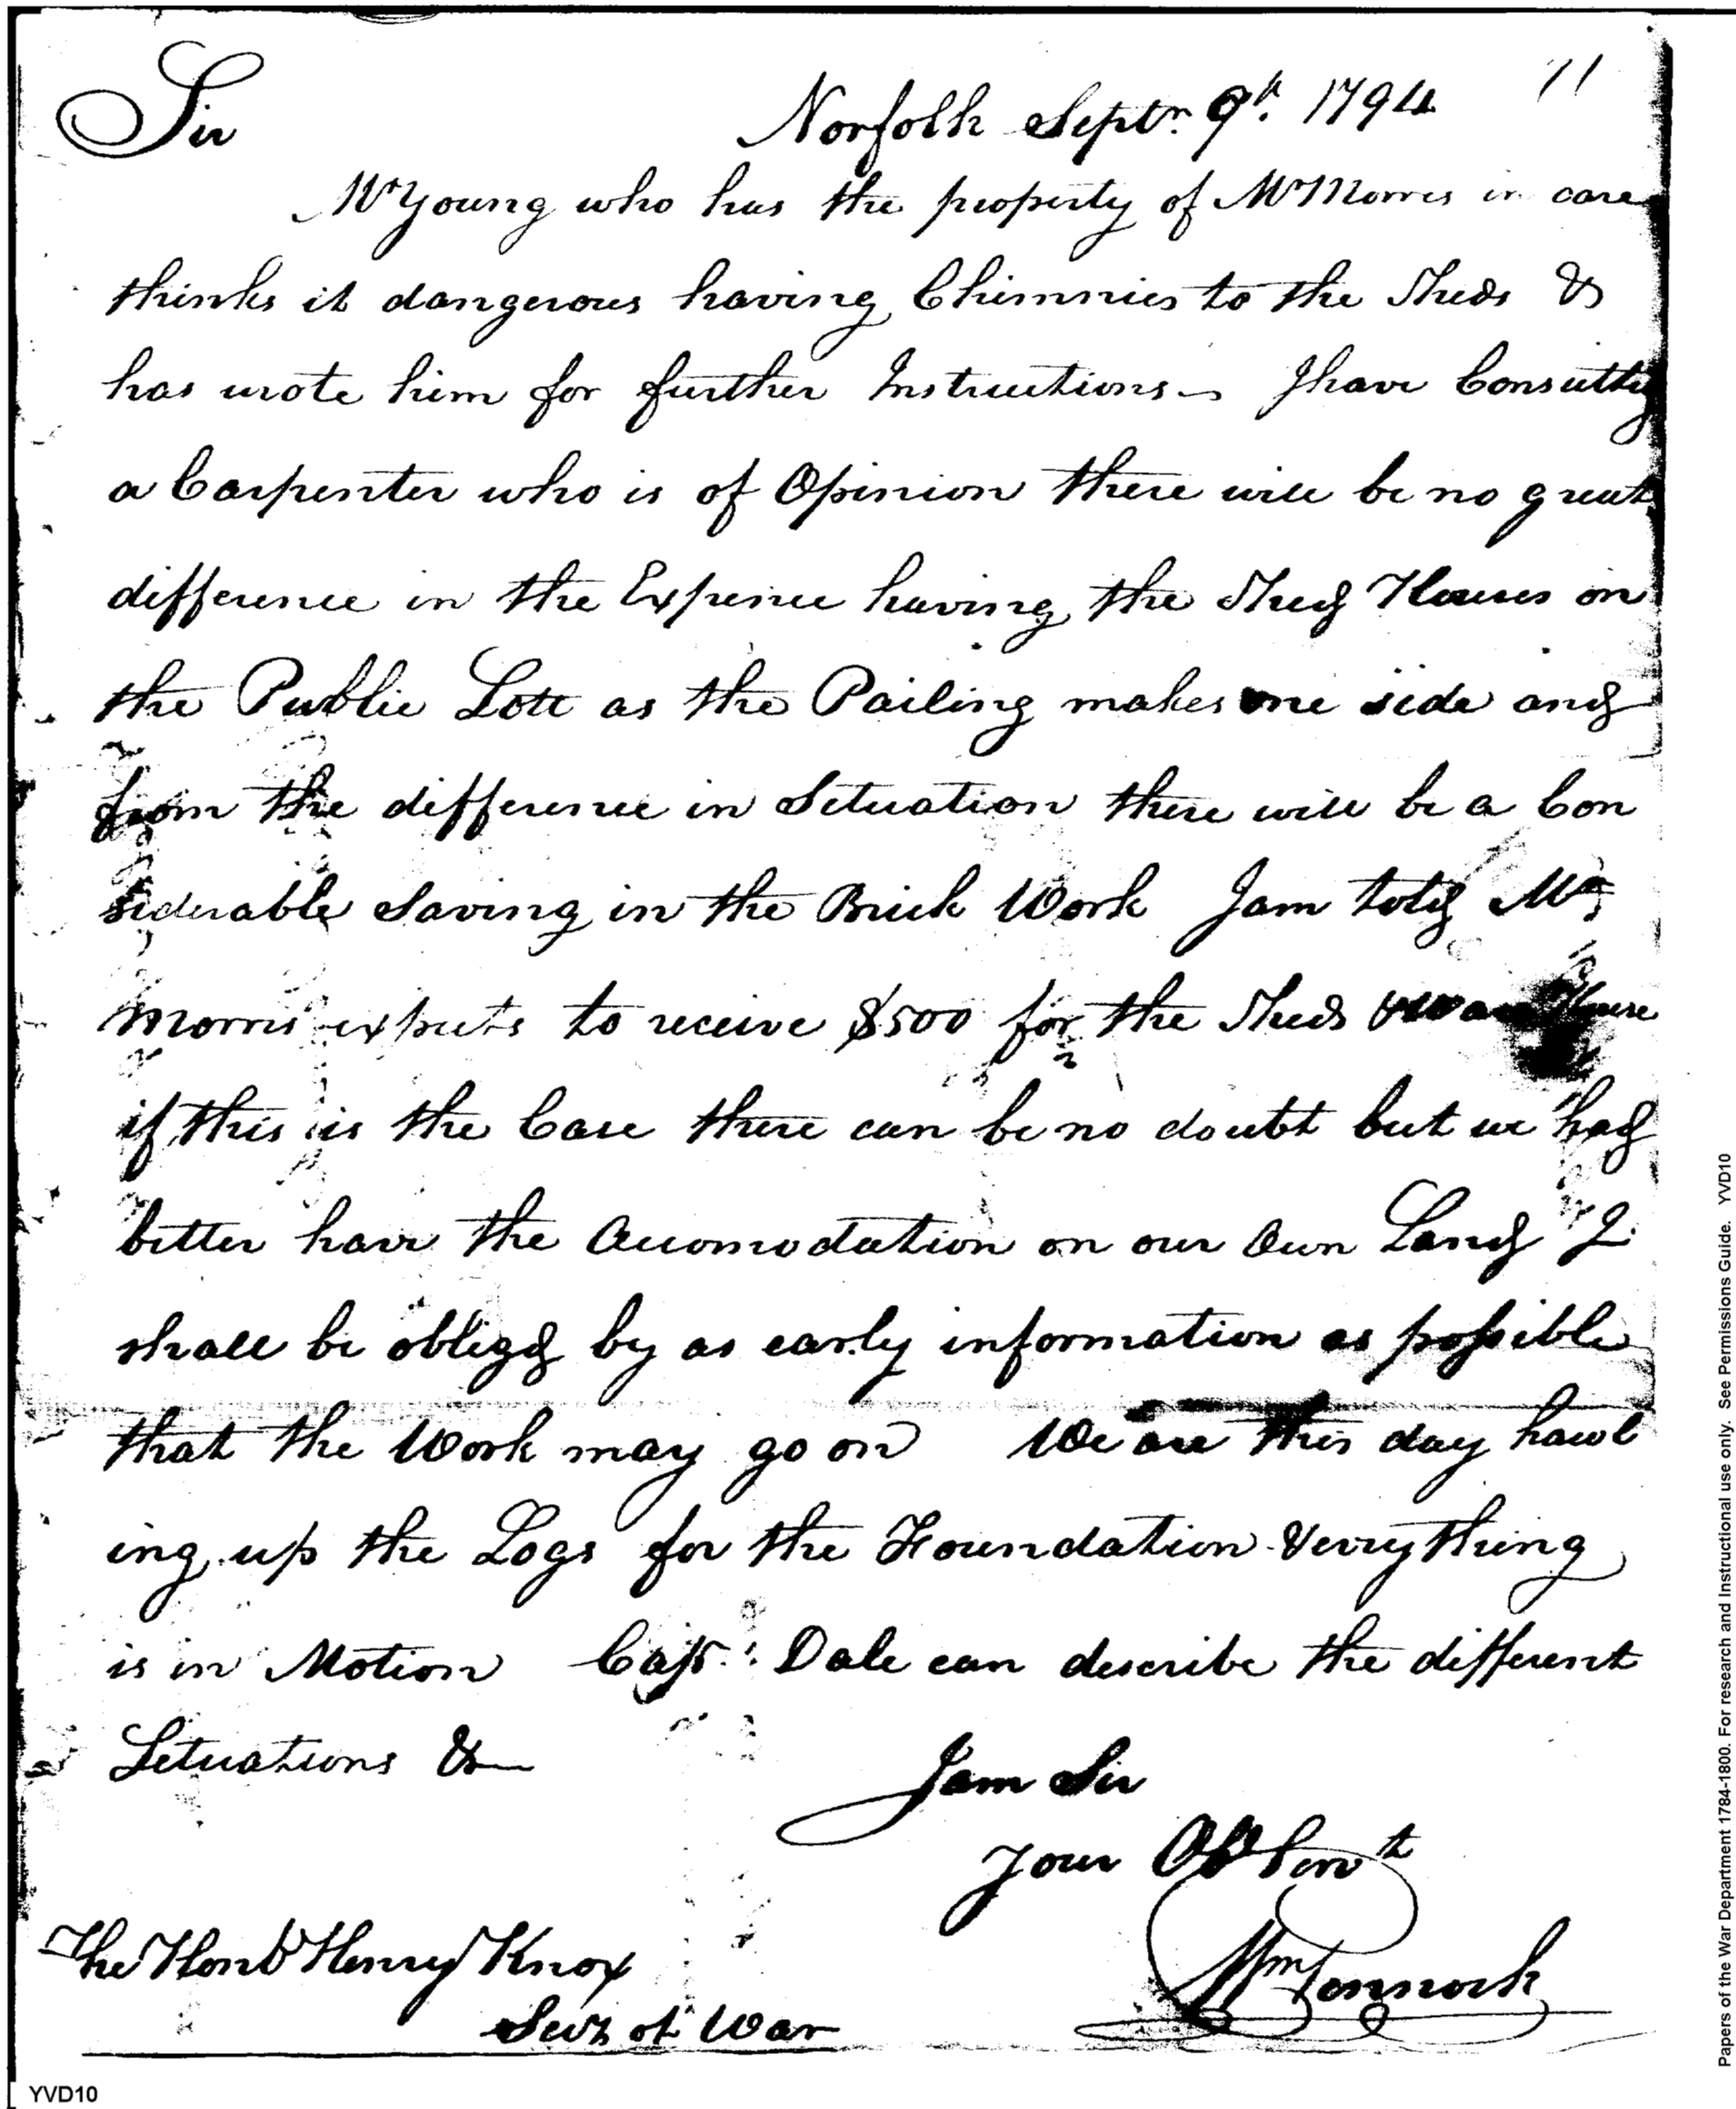 11
Sir Norfolk Septr. 9th. 1794
Mr Young who has the property of Mr Morris in care
thinks it dangerous having Chimnies to the Sheds &
has wrote him for further Instructions – I have Consulted
a Carpenter who is of Opinion there will be no great
difference in the Expence having the Shed Houses on
the Public Lott as the Pailing makes one side and
from the difference in Situation there will be a Con
siderable Saving in the Brick Work I am told Mr
Morris expects to receive $500 for the Sheds & Ware House
if this is the Case there can be no doubt but we had
better have the Accomodation on our Own Land I
shall be obliged by as early information as possible
that the Work may go on We are this day hawl
ing up the Logs for the Foundation & every thing
is in Motion Capt. Dale can describe the different
Situations &
I am Sir
Your Ob Servt
Wm Pennock
The Honb Henry Knox
Secy of War
YVD10
Papers of the War Department 1784-1800. For research and Instructional use only. See Permissions Guide. YVD10